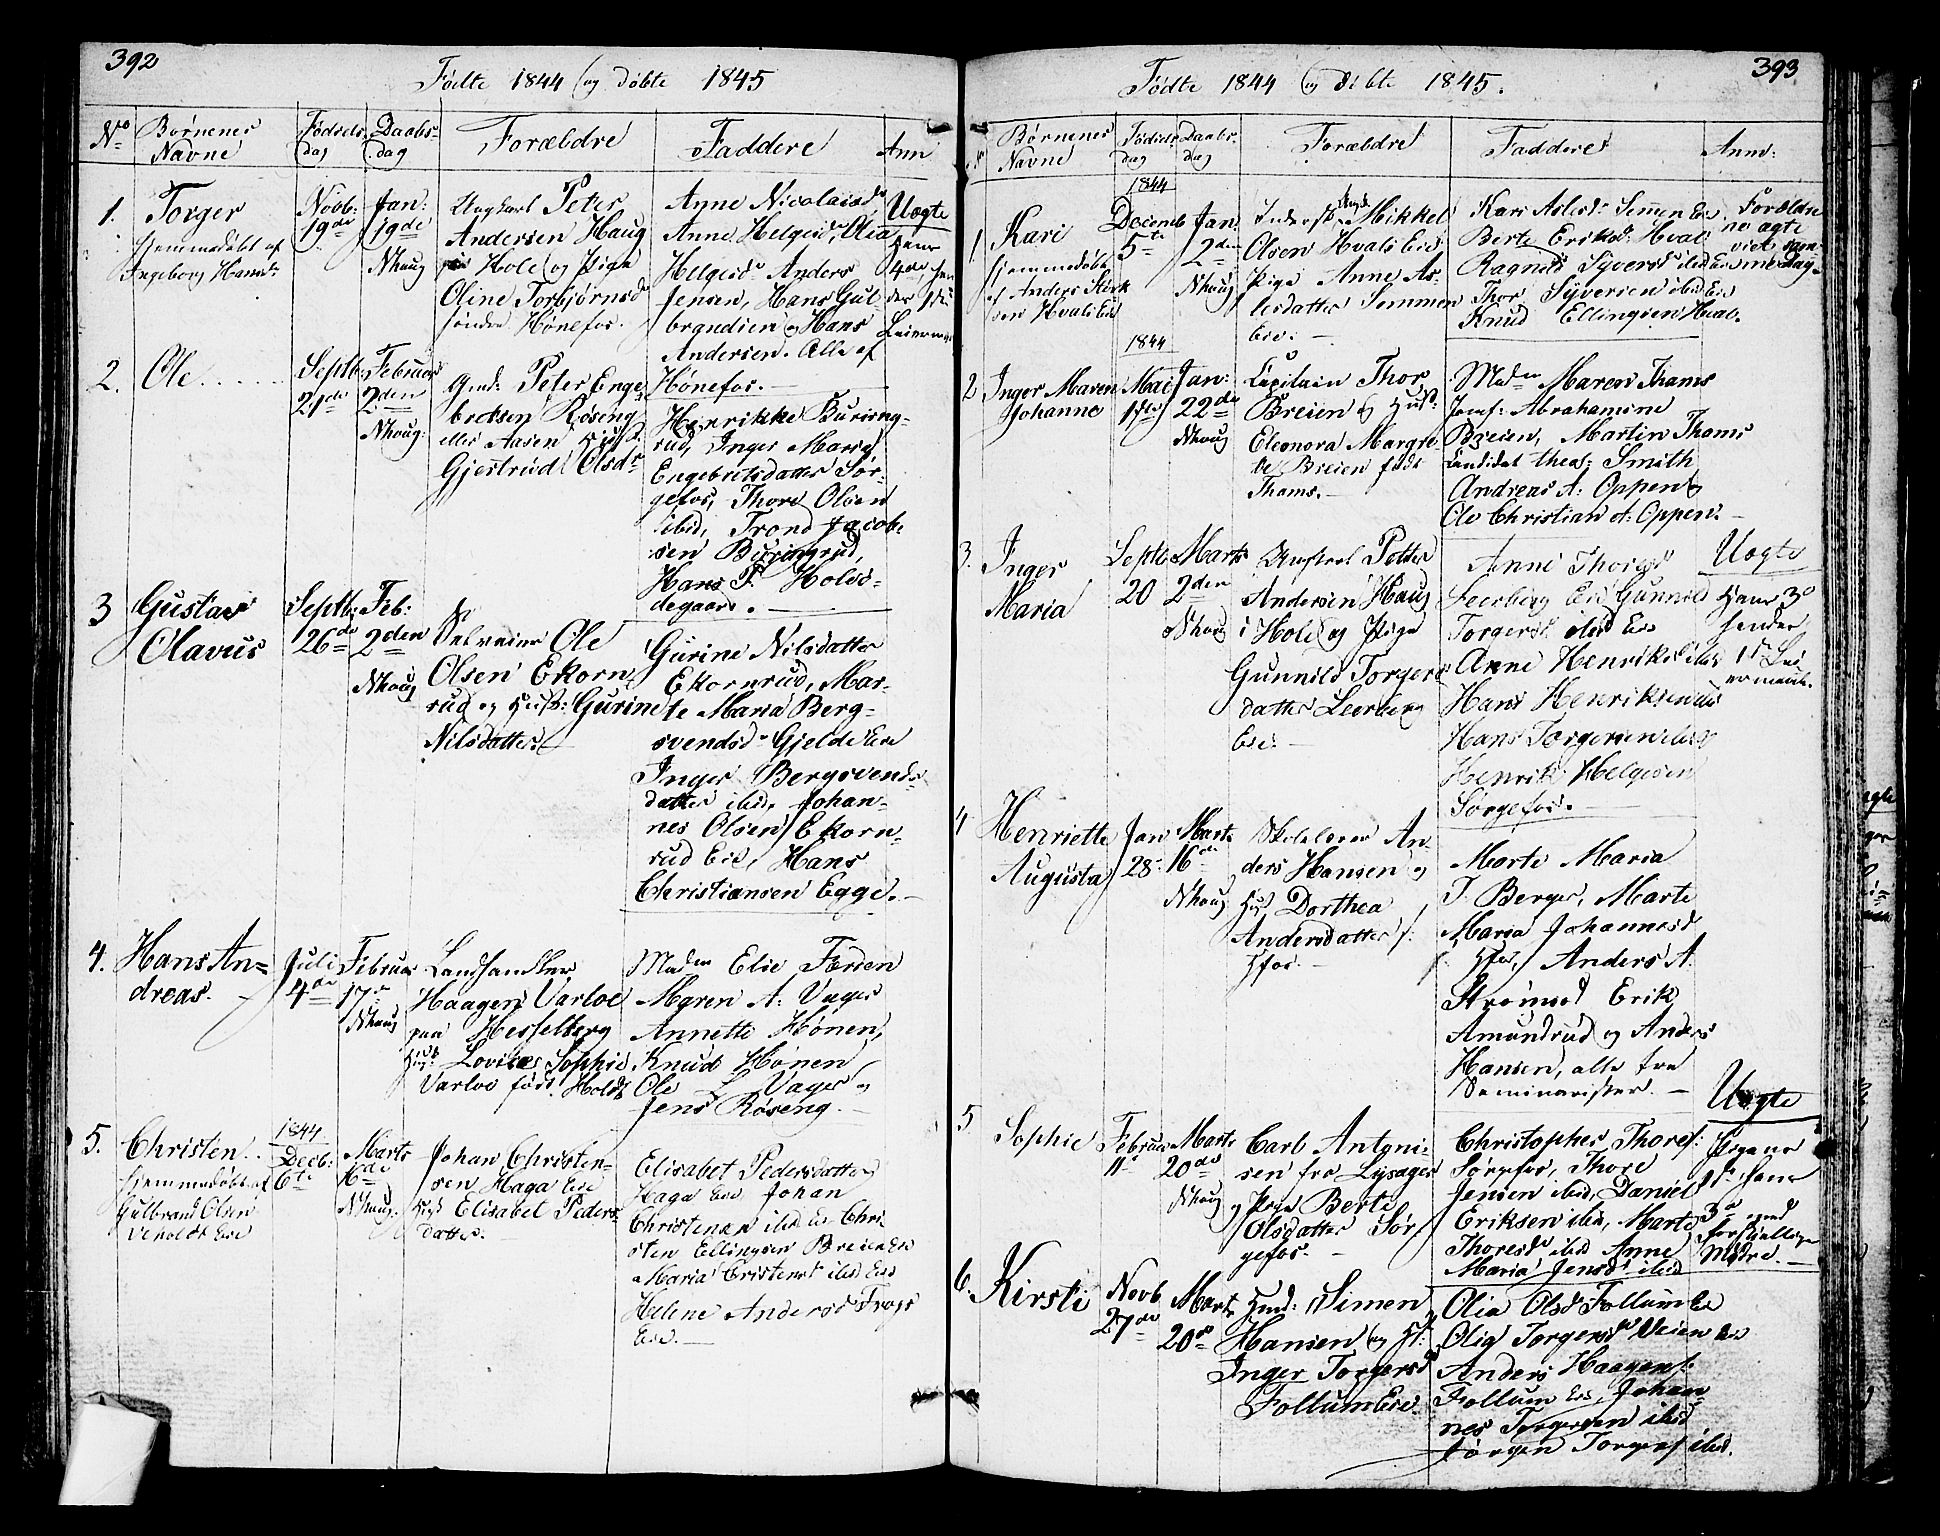 392
Fødte 1844 og døbte 1845
No
Børnenes Navne
Fødsels dag
Daabs- dag
Forældre
Faddere
Ann
1.
Torger
hjemmedøbt af
Ingeborg Hansd.
Novb:
19de
Jan:
19de
Nhoug
Ungkarl Peter
Andersen Haug
Hole og Pige
Oline Torbjørnsd
søndre Hønefos.
Anne Nicolaisd.
Anne Helgesd., Olia
Helgesd. Anders
Jensen, Hans Gul
brandsen og Hans
Andersen. Alle af
Hønefos.
Uægte
hans
4de, hen
des 1ste
Leiermaal
2.
Ole
Septb:
21de
Februar
2den
Nhoug.
Gmd: Peter Enge
bretsen Røseng
eller Aasen Hust.
Gjertrud Olsdr
Henrikke Buring-
rud, Inger Marie
Engebretsdatter Sør-
gefos, Thore Olsen
ibid, Trond Jacob-
sen Buringrud,
Hans P. Hols-
degaard.
3
Gustav
Olavus
Septb:
26de
Feb:
2den
Nhoug
Selveier Ole
Olsen Ekorn
rud og Hust: Gurine
Nilsdatter
Gurine Nilsdatter
Ekornrud, Mar-
te Maria Berg-
svendsd. Gjelde Eie
Inger Bergsvends
datter ibid, Johan-
nes Olsen Ekorn-
rud Eie, Hans
Christiansen Egge.
4.
Hans An=
dreas.
Juli
4de
Februar
17de
Nhoug
Landhandler
Haagen Varloe
paa Hesselberg
Hust. Lovise Sophie
Varloe født Holdt
Madm Elie Færden
Maren A: Vager
Annette Hønen,
Knud Hønen
Ole L Vager og
Jens Røseng.
5.
Christen
hjemmedøbt af
Gulbrand Olsen
Veholdt Eie
1844
Decb:
6te
Marts
16de
Nhoug.
Johan Christen-
sen Haga Eie
Hust Elisabet Peders
datter.
Elisabet Pedersdatter
Haga Eie Johan
Christensen ibid Eie Chri
sten Ellingsen Breien Eie
Maria Cristensd. ibid Eie
Helene Andersd
Eie.
393
Fødte 1844 og døbte 1845.
Børnenes Navne
Fødsels dag
Daabs- dag
Forældre
Faddere
Anm:
1
Kari
hjemmedøbt
af Anders
sen Hvals Eie
1844
Decemb
5te
Jan:
2den
Nhoug
Inderst Mikkel
Olsen Hvals Eie
Pige Anne As-
lesdatter Semmen
Eie.
Kari Aslesd. Semmen Eie
Berte Eriksd. Hval
Ragnild Syversd ibid Eie
Thor Syversen ibid Eie
Knud Ellingsen Hval.
Forældre
ne ægte
viet sam-
me Dag
2
Inger Maren
Johanne
1844
Mai
17de
Jan:
22de
Nhoug
Capitain Thor
Breien og Hust:
Eleonora Margre
te Breien født
Thams.
Madm Maren Thams
Jomf: Abrahamine
Breien, Martin Thams
Candidat theol: Smith
Andreas A: Oppen
Ole Christian A: Oppen.
3.
Inger
Maria
Septb
20
Marts
2den
Nhoug
Ungkarl Petter
Andersen Haug
i Hole og Pige
Gunnild Torgers
datter Leerberg
Eie.
Anne Thorsd
Leerberg Eie Gunnild
Torgersd. ibid Eie
Anne Henriksd ibid
Hans Henriksen ibid
Hans Torgersen ibid
Henrik Helgesen
Sørgefos.
Uægte
Hans 3de
hendes
1ste Lei
ermaal.
4
Henriette
Augusta
Jan
28
Marts
16de
Nhoug
Skolelærer An
ders Hansen og
Hust Dorthea
Andersdatter
Hfos.
Marte Maria
T. Berger, Marte
Maria Johannesd
Hfos, Anders A.
Strømsod Erik
Amundrud og Anders
Hansen, alle tre
Seminarister.
5
Sophie
Februar
11te
Marts
20de
Nhoug
Carl Antoni-
sen fra Lysager
og Pige Berte
Olsdatter Sør
gefos.
Christopher Thores:
Sørgefos, Thore
Jensen ibid, Daniel
Eriksen ibid, Marte
Thoresd. ibid Anne
Maria Jensd. ibid
Uægte
1ste hans
3de med
forskjellige
Mødre.
6.
Kirsti
Novb
27de
Marts
20de
Hmd: Simen
Hansen og H:
Inger Torgersd
Follum Eie.
Olia Olsd Follum Eie
Olia Torgersd Veien Eie
Anders Haagens:
Follum Eie, Johan
nes Torgersen ibid
Jørgen Torgers ibid.